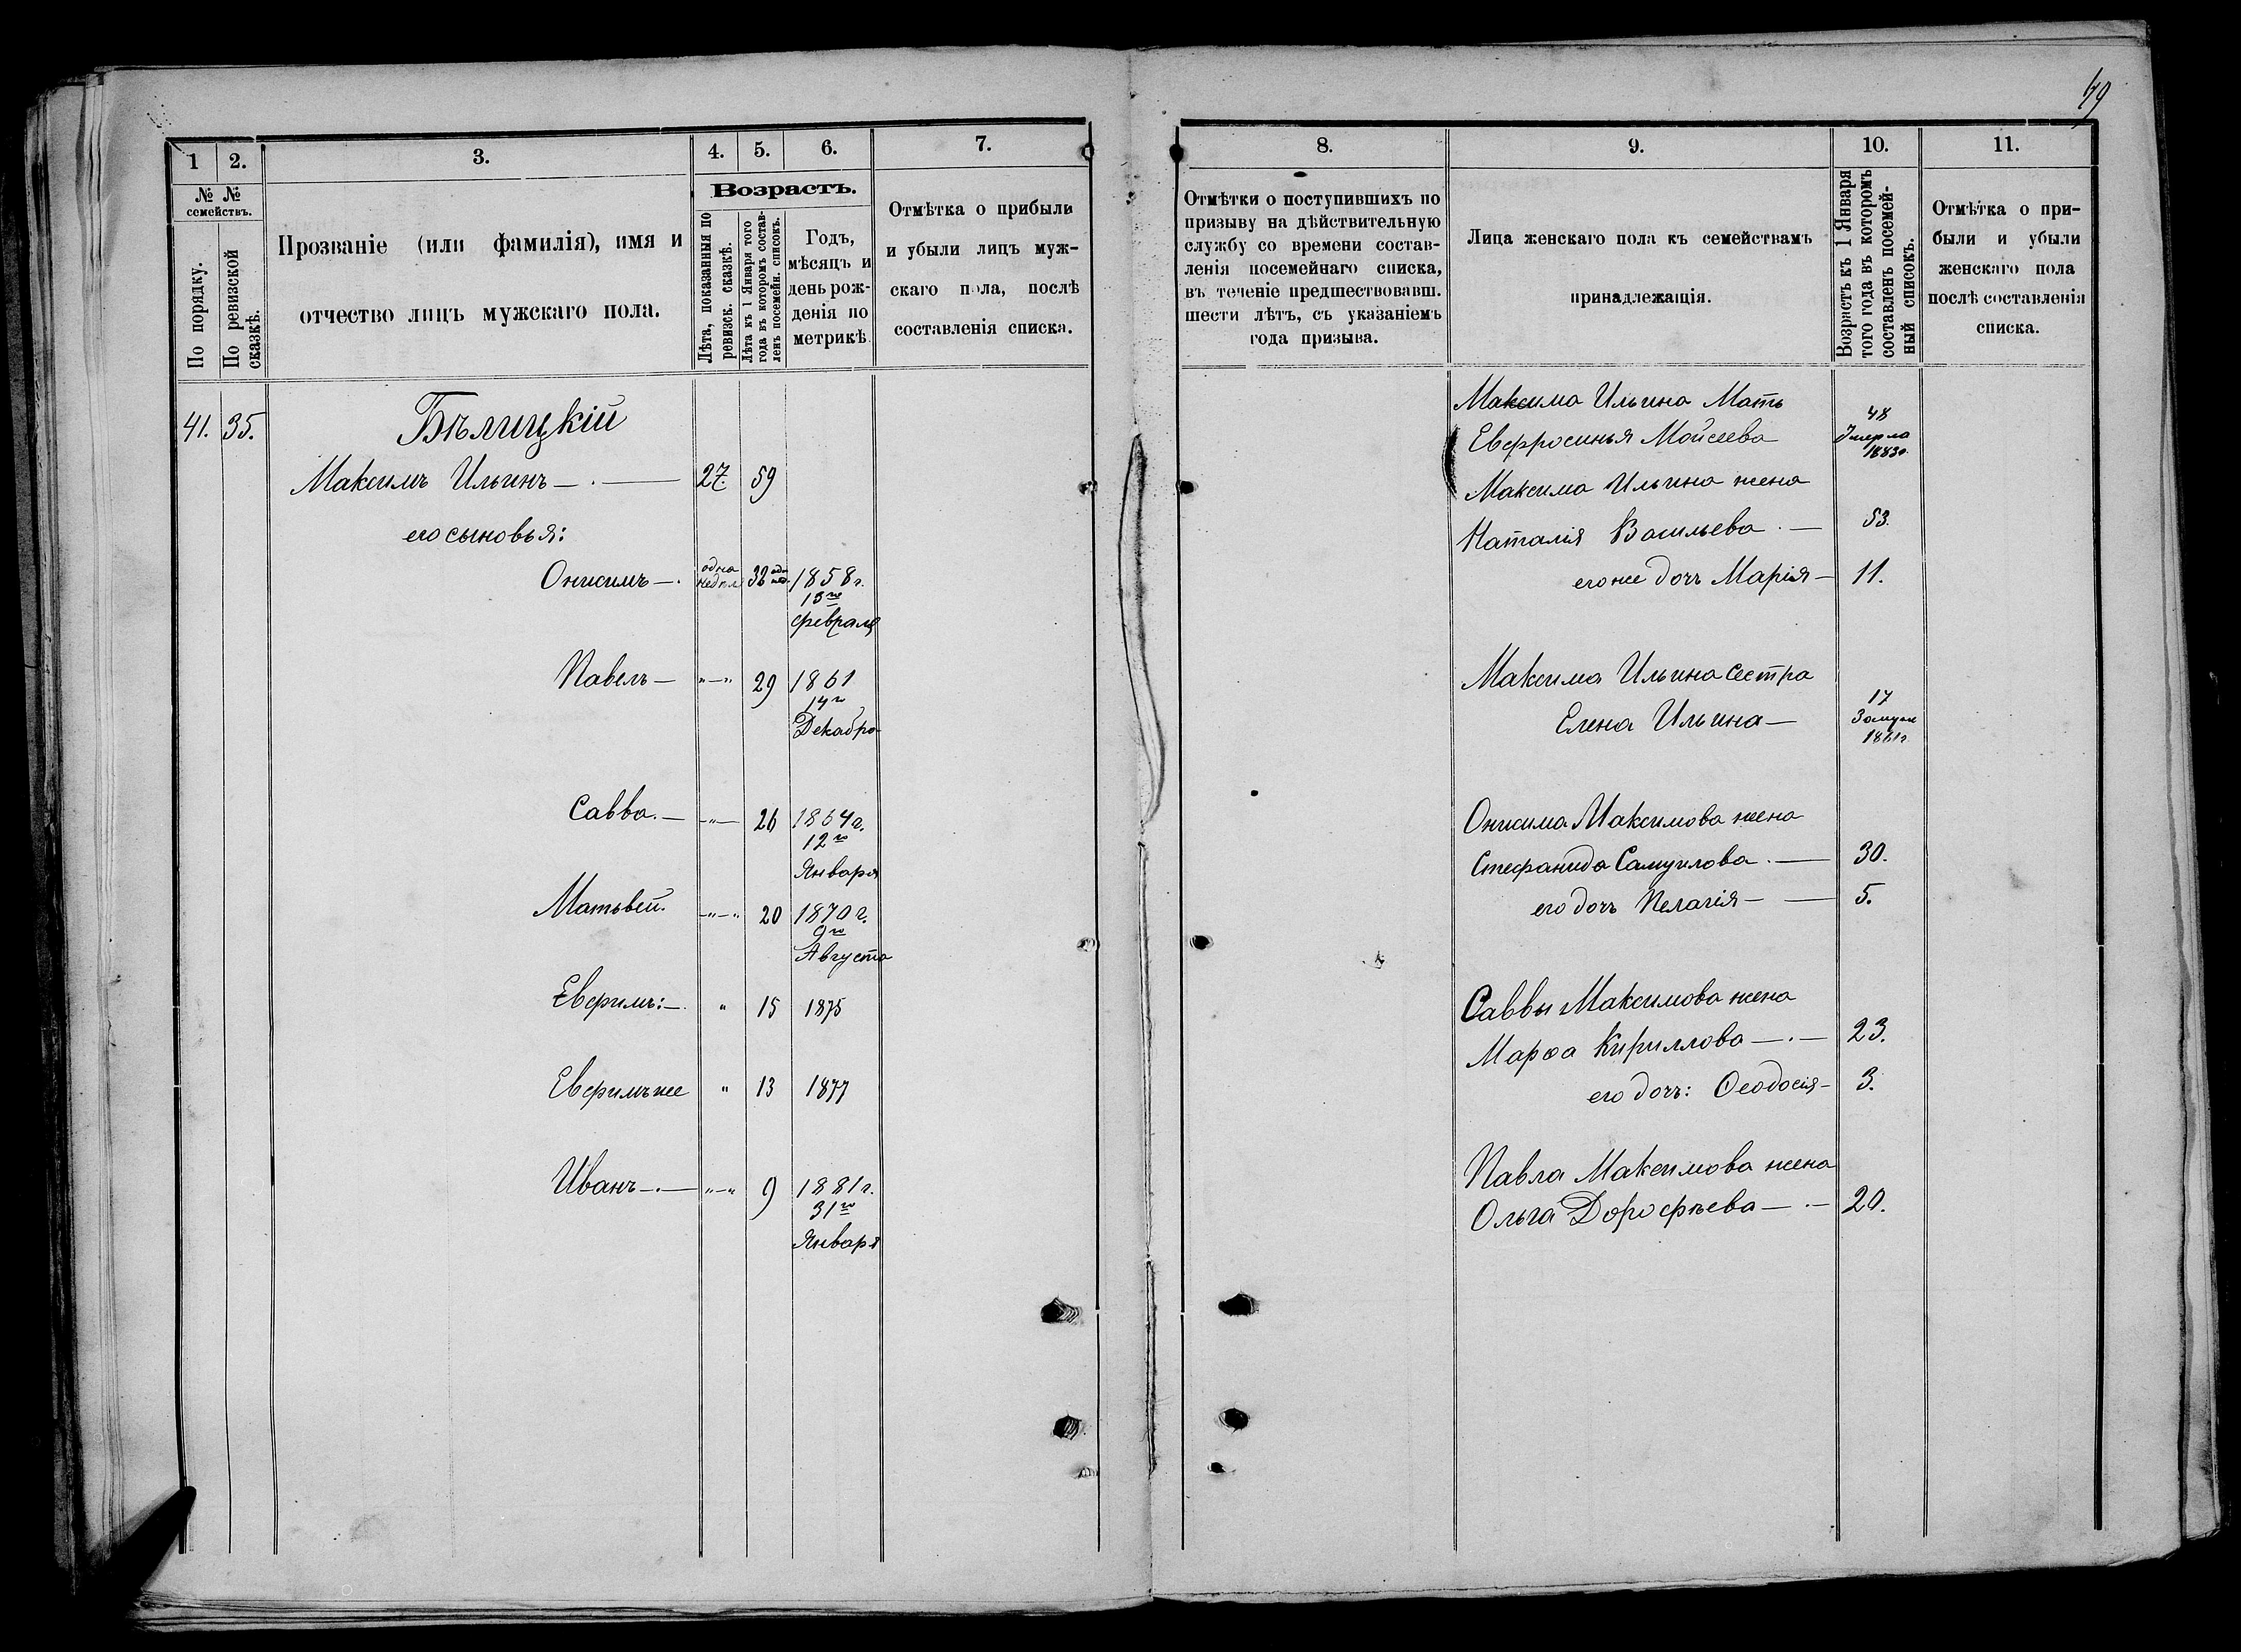 49
1 2. 3. 4. 5. 6. 7.
№ №
семействъ.
По порядку.
По ревизской
сказкѣ.
Прозваніе (или фамилія), имя и
отчество лицъ мужскаго пола.
Возрастъ.
Лѣта, показанныя по
ревизск. сказкѣ.
Лѣта къ 1 Января того
года въ которомъ состав-
ленъ посемейн. списокъ.
Годъ,
мѣсяцъ и
день рож-
денія по
метрикѣ
Отмѣтка о прибыли
и убыли лицъ муж-
скаго пола, послѣ
составленія списка.
41. 35. Бѣлицкій
Максимъ Ильинъ 27. 59
его сыновья:
Онисимъ одна недѣл 32 1858 г.
13го
февраля
Павелъ 29 1861
14го
Декабря
Савва 26 1864 г.
12го
Января
Матвѣй 20 1870 г.
9го
Августа
Евфимъ: " 15 1875
Евфимъ же " 13 1877
Иванъ 9 1881 г.
31го
Января
8. 9. 10. 11.
Отмѣтки о поступившихъ по
призыву на дѣйствительную
службу со времени состав-
ленія посемейнаго списка,
въ теченіе предшествовавш.
шести лѣтъ, съ указаніемъ
года призыва.
Лица женскаго пола къ семействамъ
принадлежащія.
Возрастъ къ 1 Января
того года въ которомъ
составленъ посемей-
ный списокъ.
Отмѣтка о при-
были и убыли
женскаго пола
послѣ составленія
списка.
Максима Ильина Мать
Евфросинья Мойсеева 48
Умерла
1883г
Максима Ильина жена
Наталія Васильева 53.
его же дочь Марія 11.
Максима Ильина сестра
Елена Ильина 17
Замуж
1861г
Онисима Максимова жена
Стефанида Самуилова 30.
его дочь Пелагія 5.
Саввы Максимова жена
Марѳа Кириллова 23.
его дочь: Ѳеодосія 3.
Павла Максимова жена
Ольга Дорофѣева 20.